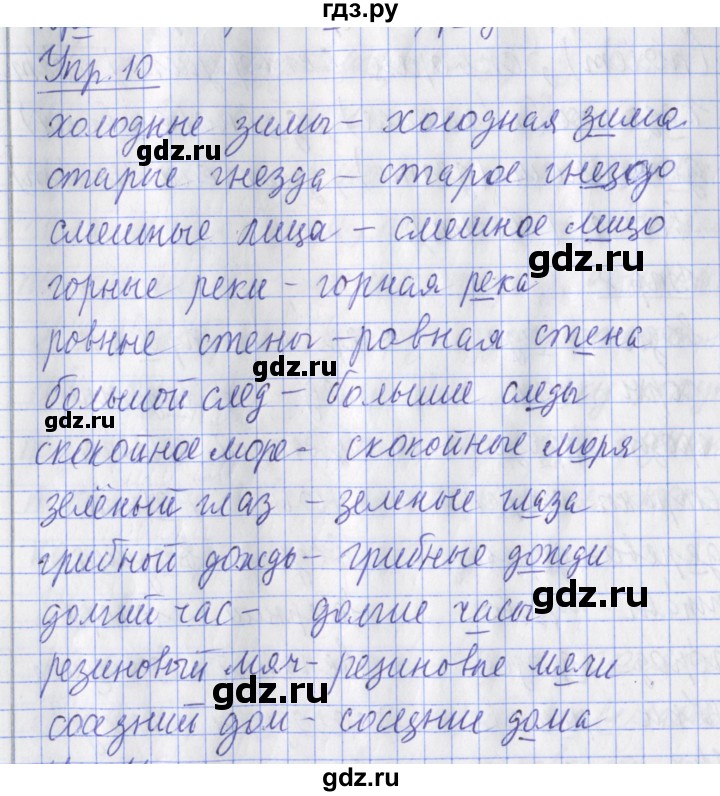 гдз.ру
Упр. 10
холодные зимы – холодная зима.
gdz.ru
старые гнезда – старое гнездо
смешные лица – смешное лицо
gdz.ru
горные реки – горная река
ровные стены – ровная стена
gdz.ru
большой след – большие следы
gdz.ru
скокойное море – скокойные моря
зелёный глаз – зеленые глаза
грибной дождь – грибные дожди
долгий час – долгие часы
gdz.ru
резиновый мяч – резиновые мячи
gdz.ru
соседний дом – соседние дома
gdz.ru